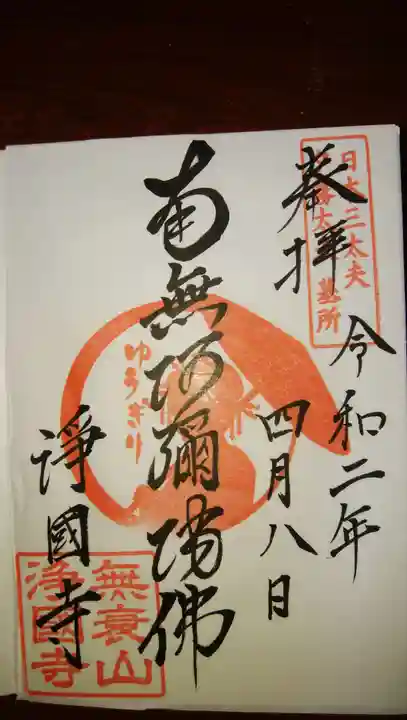 奉拝
日本三大夫
墓所
令和二年
四月八日
南無阿彌陀佛
ゆうぎり
淨國寺
無衰山
浄國寺